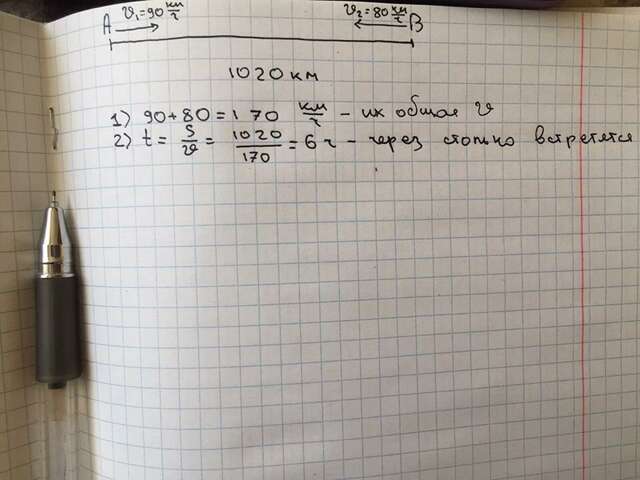 A v₁=90 км/ч v₂=80 км/ч B
1020 км
1) 90+80=170 км/ч – их общая v
2) t = S/v = 1020/170 = 6 ч – через столько встретятся